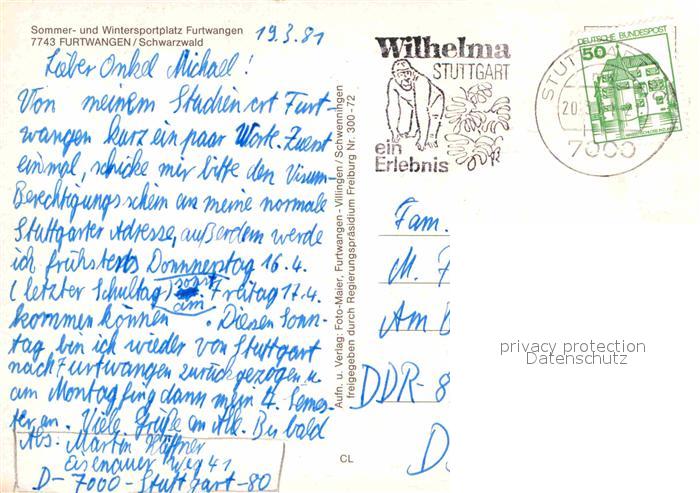 Sommer- und Wintersportplatz Furtwangen
7743 FURTWANGEN / Schwarzwald
19.3.81
Lieber Onkel Michael!
Von meinem Studienort Furt-
wangen kurz ein paar Worte. Zuerst
einmal, schicke mir bitte den Visum-
Berechtigungsschein an meine normale
Stuttgarter Adresse, außerdem werde
ich frühstens Donnnerstag 16.4.
(letzter Schultag) sonst am Freitag 17.4.
kommen können. Diesen Sonn-
tag bin ich wieder von Stuttgart
nach Furtwangen zurückgezogen u.
am Montag fing dann mein 4. Semes-
ter an. Viele Grüße an Alle. Bis bald
Abs: Martin
Eisenauer Weg 41
D-7000-Stuttgart-80
Aufn. u. Verlag: Foto-Maier, Furtwangen - Villingen / Schwenningen
freigegeben durch Regierungspräsidium Freiburg Nr. 300-72
CL
Wilhelma
STUTTGART
ein
Erlebnis
STUT
20.
7000
DEUTSCHE BUNDESPOST
50
Fam.
M.
Am
DDR-8
D
privacy protection
Datenschutz